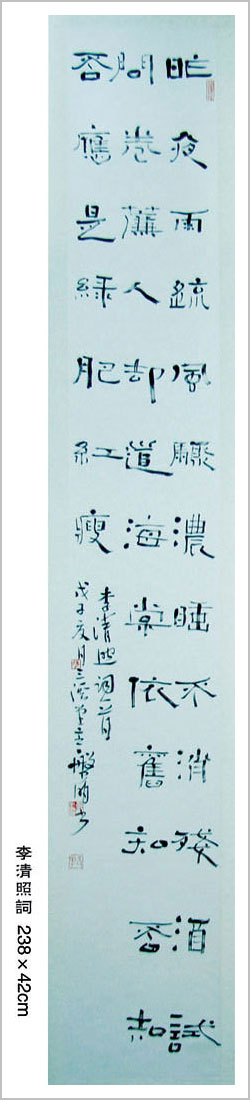 昨夜雨疏風驟濃睡不消殘酒試
問卷簾人却道海棠依舊知否知
否應是綠肥紅瘦
李清照詞一首
戊子夏月
李清照詞 238×42cm